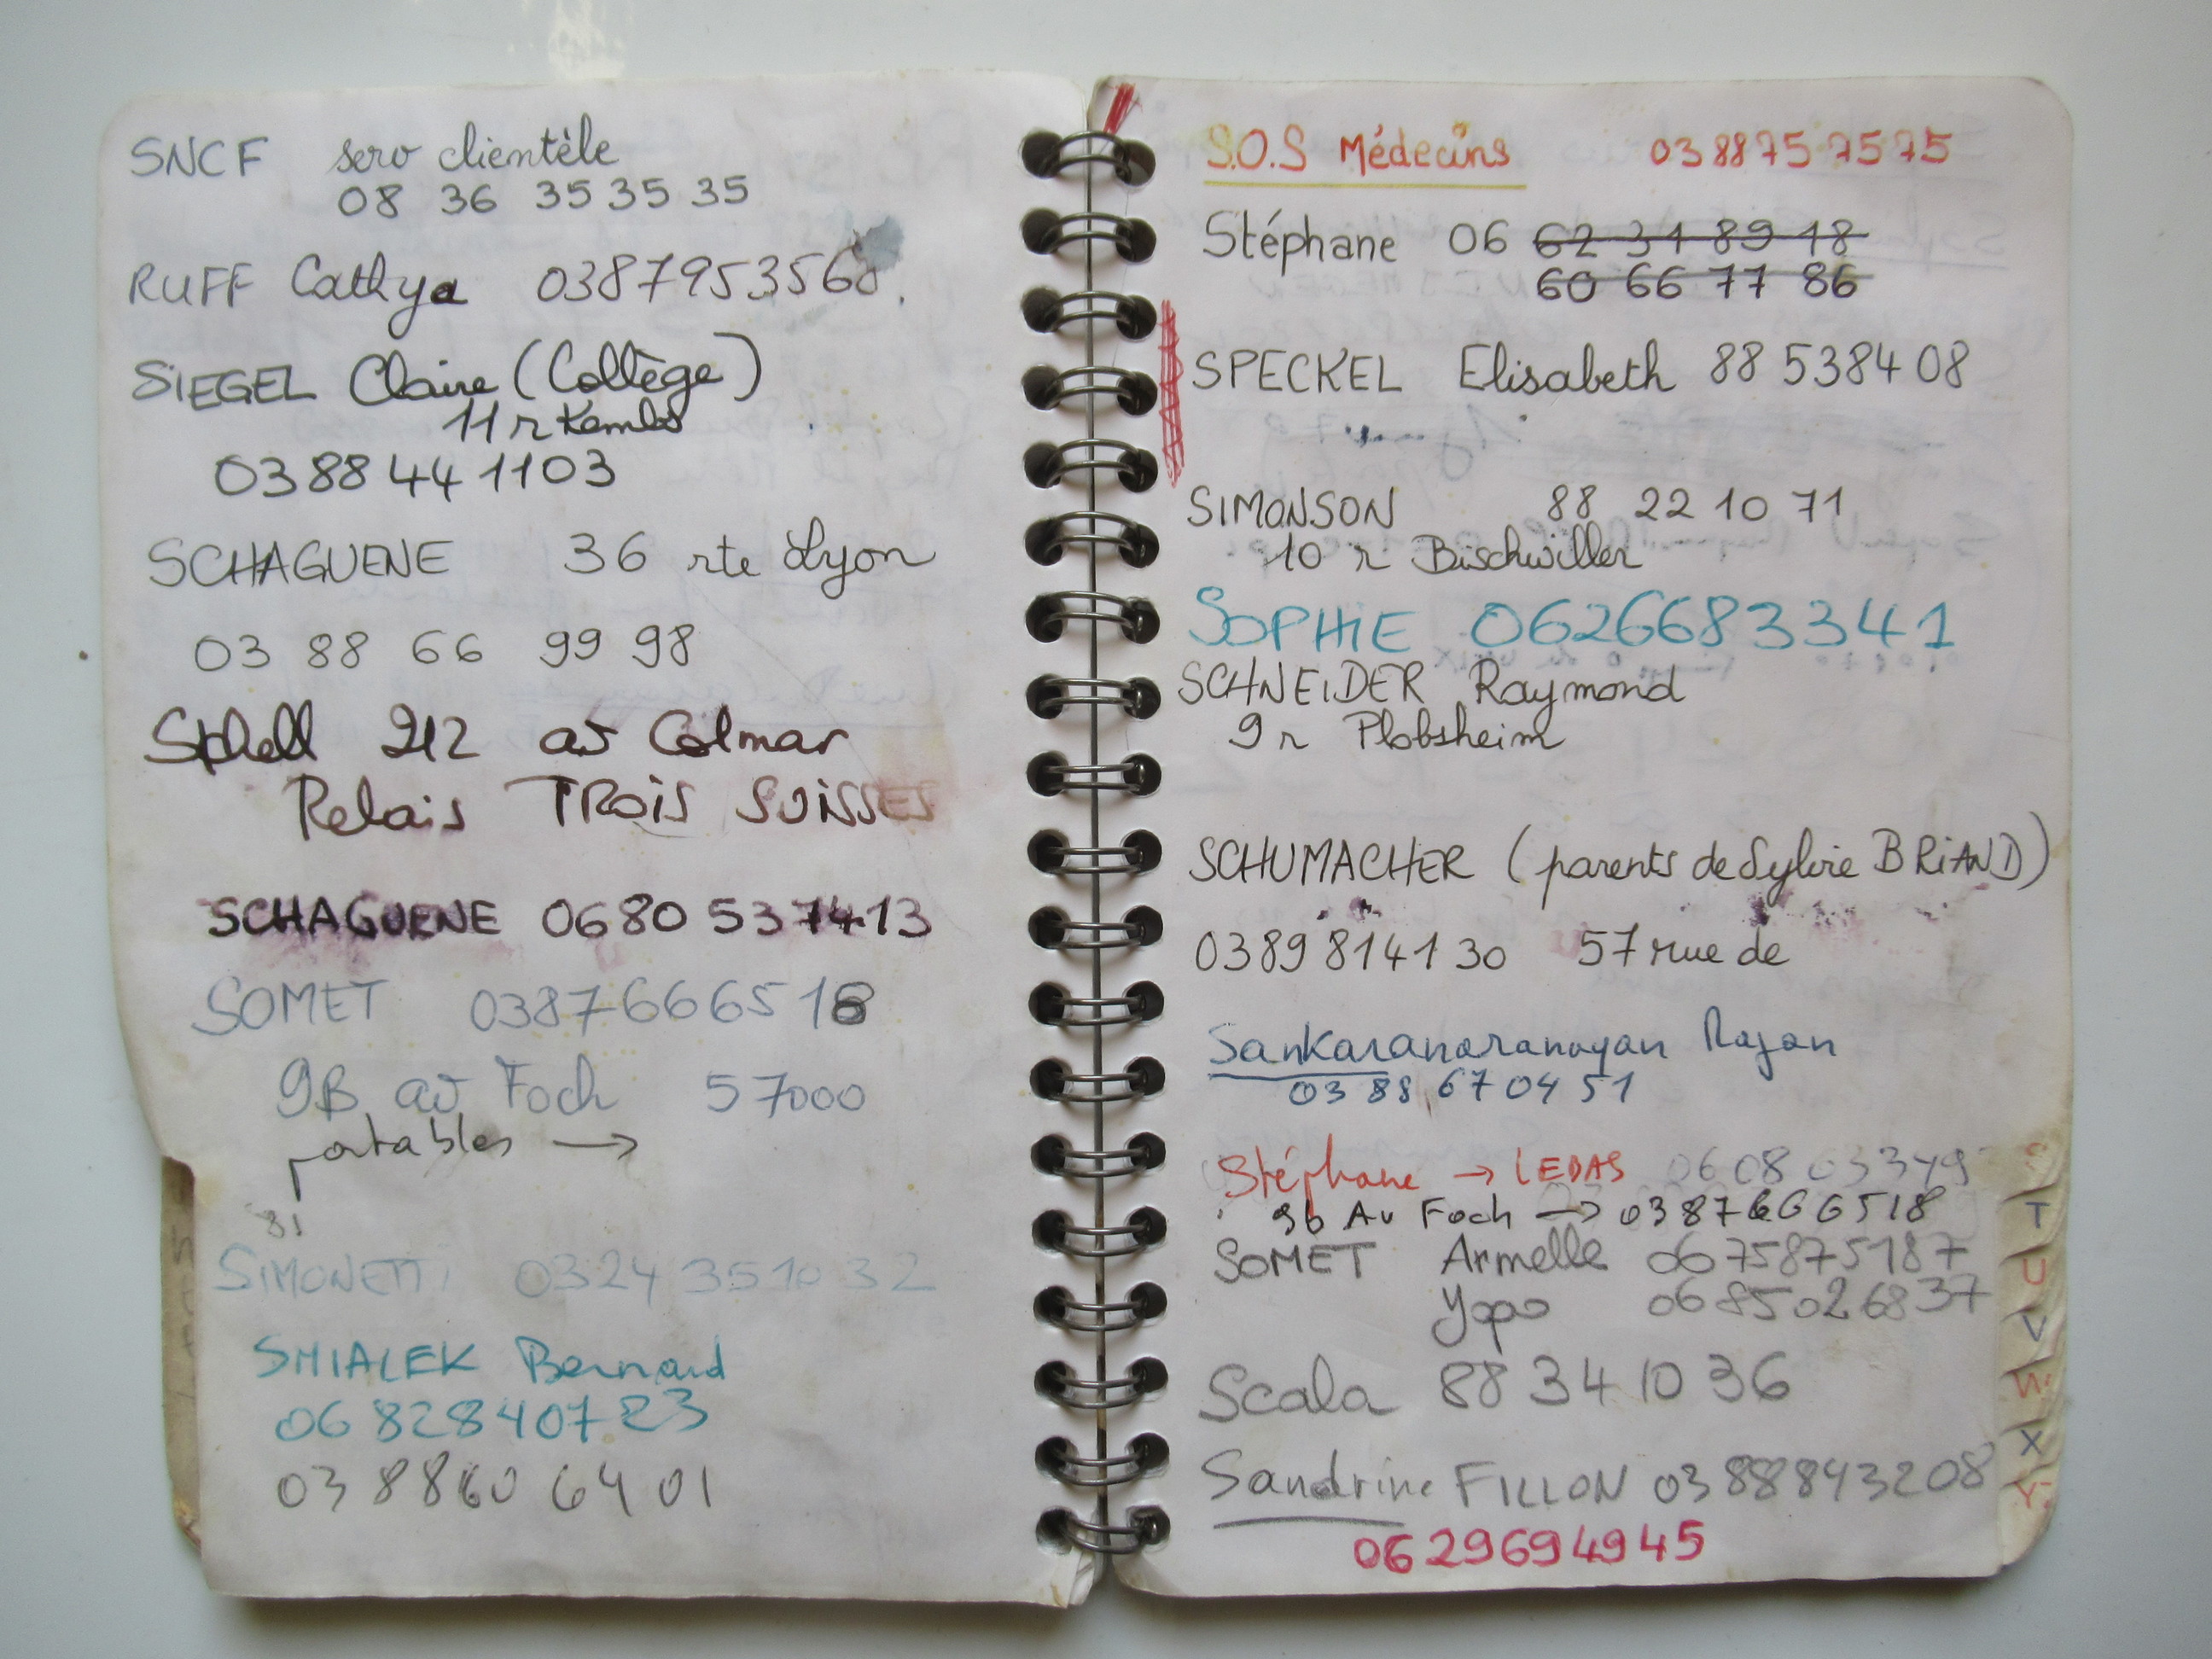 SNCF serv clientèle
08 36 35 35 35
RUFF Cathy 0387953560.
SIEGEL Claire (Collège)
11 r Kembs
03 88 44 1103
SCHAGUENE 36 rte Lyon
03 88 66 99 98
212 av Colmar
Relais TROIS SUISSES
SCHAGUENE 0680 537413
SOMET 0387666518
9B av Foch 57000
portables →
81
SIMONETTI 0324 351032
SMIALEK Bernard
06 82840723
03 8860 64 01
S.O.S Médecins 03 88 75 75 75
Stéphane 06 62 31 89 18
60 66 77 86
SPECKEL Elisabeth 88 538408
SIMONSON 88 22 10 71
10 r Bischwiller
SOPHIE 0626683341
SCHNEIDER Raymond
9 r Plobsheim
SCHUMACHER (parents de Sylvie BRIAND)
0389 814130 57 rue de
Sankaranaranayan Rajan
03 88 67 04 51
Stéphane → LEDAS 0608033493
9b Av Foch → 0387666518
SOMET Armelle 0675875187
Yopo 0685026837
Scala 88 34 10 36
Sandrine FILLON 0388843208
0629694945
S
T
U
V
W
X
Y